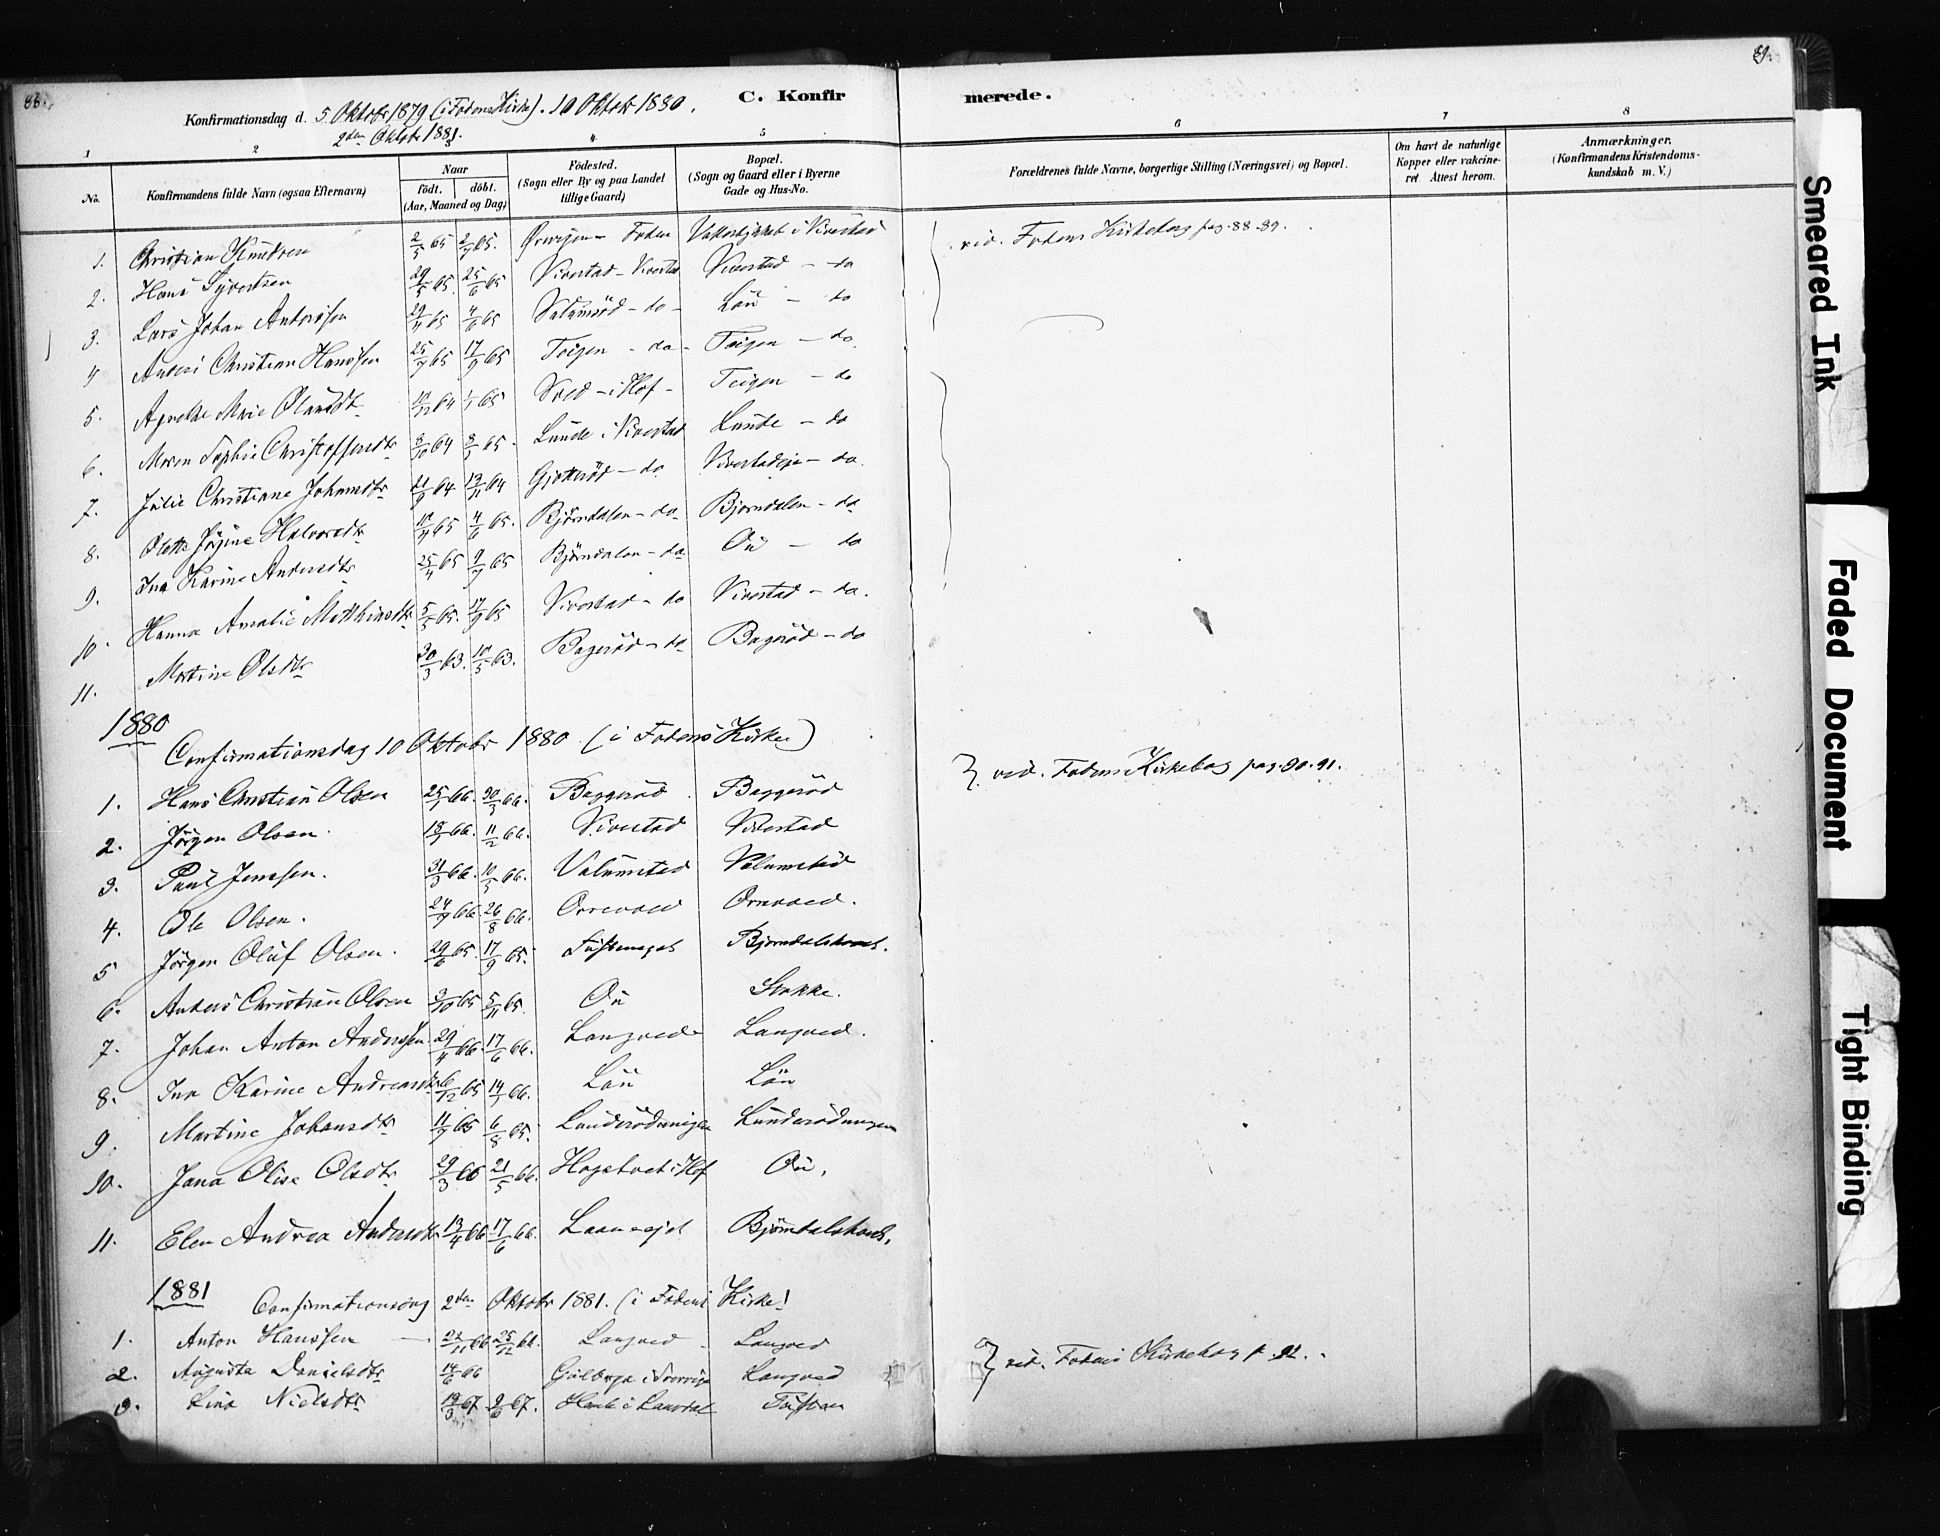 88.
89.
C. Konfirmerede.
Konfirmationsdag d. 5 Oktobr 1879 (i Fodens Kirke). 10 Oktobr 1880.
2den Oktobr 1881.
1 2 4 5 6 7 8
No.
Konfirmandens fulde Navn (ogsaa Efternavn)
Naar
födt. döbt.
(Aar, Maaned og Dag)
Födested.
(Sogn eller By og paa Landet tillige Gaard)
Bopæl.
(Sogn og Gaard eller i Byerne Gade og Hus-No.
Forældrenes fulde Navne, borgerlige Stilling (Næringsvei) og Bopæl.
Om havt de naturlige Kopper eller vakcineret Attest herom.
Anmærkninger.
(Konfirmandens Kristendomskundskab m. V.)
1. Christian Knudsen 65 65. Foden i Vivestad vid. Fodens Kirkebog pag. 88-89.
2. Hans Syvertsen 29/5 65. 25/6 65 Vivestad - Vivestad Vivestad - do
3. Lars Johan Anderssen 29/4 65 4/6 65 - do - Löu - do
4 Anders Christian Hanssen 25/7 65 17/9 65 Teigen - do - Teigen - do.
5. Agnethe Marie Olausdtr 64 1/1 65 - i Hof - Teigen - do
6. Maren Sophie Christoffersdtr 8/10 64 65 Lunde i Vivestad Lunde - do
7. Julie Christiane Johansdtr 21/9 64 13/11 64 - do. - do.
8. Olette Jörgine Halvorsdtr 65 4/6 65. Björndalen - do Björndalen - do
9. Ina Karine Andersdtr 25/4 65 9/7 65 Björndalen - do Ou - do
10. Hanna Amalie Matthiasdtr 5/5 65. 17/9 65 Vivestad - do Vivestad - do.
11. Martine Olsdtr 30/3 63. 10/5 63. Bageröd - do Bageröd - do
1880
Confirmationsdag 10 Oktobr 1880 (i Fodens Kirke)
1. Hans Christian Olsen 25/1 66. 30/3 66. Baggeröd Baggeröd vid. Fodens Kirkebog pag. 90.91.
2. Jörgen Olsen. 66. 11/2 66. Vivestad Vivestad
3. Paul Jenssen. 31/3 66. 10/5 66. Valumstad Valumstad
4. Ole Olsen. 24/7 66. 26/8 66.
5 Jörgen Oluf Olsen. 29/6 65. 17/9 65.
6. Anders Christian Olsen 3/10 65 5/11 65. Ou Stokke.
7. Johan Anton Anderssen 29/4 66. 17/6 66. Langved Langved.
8. Ina Karine Andreasdtr 6/12 65 14/1 66. Löu Löu
9. Martine Johansdtr 11/7 65 6/8 65. Lunderödningen Lunderödningen
10. Jana Olise Olsdtr 29/3 66 21/5 66. Hagetvet i Hof Ou.
11. Elen Andrea Andersdtr 13/4 66 17/6 66.
1881
Confirmationsdag 2den Oktobr 1881. (i Fodens Kirke)
1. Anton Hanssen 22/11 66 25/12 66. Langved Langved vid. Fodens Kirkebog p. 92.
2. Augusta Danielsdtr 14/6 66 i Sverrige Langved
3. Lina Nielsdtr 19/3 67 9/6 67.
Smeared Ink
Faded Document
Tight Binding